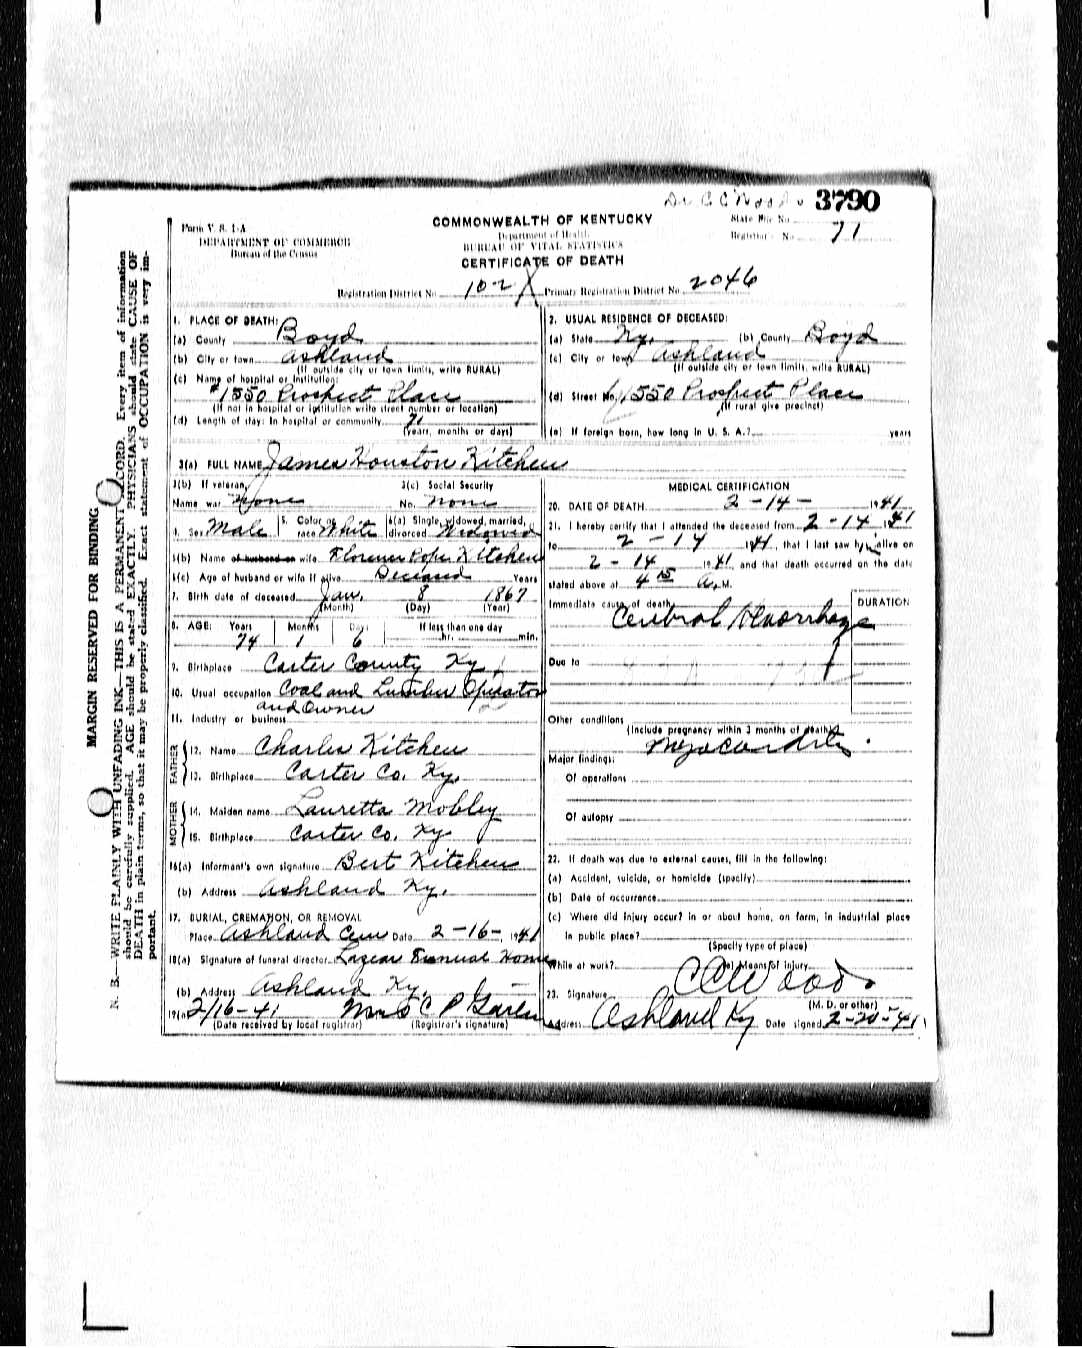 Dr C C Woods 3790
Form V. S. 1-A
DEPARTMENT OF COMMERCE
Bureau of the Census
COMMONWEALTH OF KENTUCKY
Department of Health
BUREAU OF VITAL STATISTICS
CERTIFICATE OF DEATH
State File No.
Registrar's No. 71
Registration District No. 102 Primary Registration District No. 2046
MARGIN RESERVED FOR BINDING
N. B.—WRITE PLAINLY WITH UNFADING INK—THIS IS A PERMANENT RECORD. Every item of information
should be carefully supplied. AGE should be stated EXACTLY. PHYSICIANS should state CAUSE OF
DEATH in plain terms, so that it may be properly classified. Exact statement of OCCUPATION is very im-
portant.
1. PLACE OF DEATH:
(a) County Boyd
(b) City or town Ashland
(If outside city or town limits, write RURAL)
(c) Name of hospital or institution:
#1550 Prospect Place
(If not in hospital or institution write street number or location)
(d) Length of stay: In hospital or community 71
(years, months or days)
2. USUAL RESIDENCE OF DECEASED:
(a) State Ky. (b) County Boyd
(c) City or town Ashland
(If outside city or town limits, write RURAL)
(d) Street No. 1550 Prospect Place
(If rural give precinct)
(e) If foreign born, how long in U. S. A.? years
3(a) FULL NAME James Houston Kitchen
3(b) If veteran, 3(c) Social Security
Name war None No. none
4. Sex Male 5. Color or race White 6(a) Single, widowed, married, divorced Widowed
6(b) Name of husband or wife Florence Pope Kitchen
6(c) Age of husband or wife if alive Deceased Years
7. Birth date of deceased Jan. 8 1867
(Month) (Day) (Year)
8. AGE: Years Months Days If less than one day
74 1 6 hr. min.
9. Birthplace Carter County Ky
10. Usual occupation Coal and Lumber Operator
and Owner
11. Industry or business
FATHER
12. Name Charles Kitchen
13. Birthplace Carter Co. Ky.
MOTHER
14. Maiden name Lauretta Mobley
15. Birthplace Carter Co. Ky
16(a) Informant's own signature Bert Kitchen
(b) Address Ashland Ky.
17. BURIAL, CREMATION, OR REMOVAL
Place Ashland Cem Date 2-16-, 1941
18(a) Signature of funeral director Lazear Funeral Home
(b) Address Ashland Ky.
19(a) 2/16-41 Mrs C P
(Date received by local registrar) (Registrar's signature)
MEDICAL CERTIFICATION
20. DATE OF DEATH 2-14- 1941
21. I hereby certify that I attended the deceased from 2-14 1941
to 2-14 1941, that I last saw h alive on
2-14 1941, and that death occurred on the date
stated above at 4 15 A. M.
Immediate cause of death DURATION
Cerebral Hemorrhage
Due to
Other conditions
(Include pregnancy within 3 months of death)
Myocarditis.
Major findings:
Of operations
Of autopsy
22. If death was due to external causes, fill in the following:
(a) Accident, suicide, or homicide (specify)
(b) Date of occurrence
(c) Where did injury occur? in or about home, on farm, in industrial place
in public place?
(Specify type of place)
While at work? (e) Means of injury
23. Signature C C Woods
(M. D. or other)
Address Ashland Ky Date signed 2-20-41